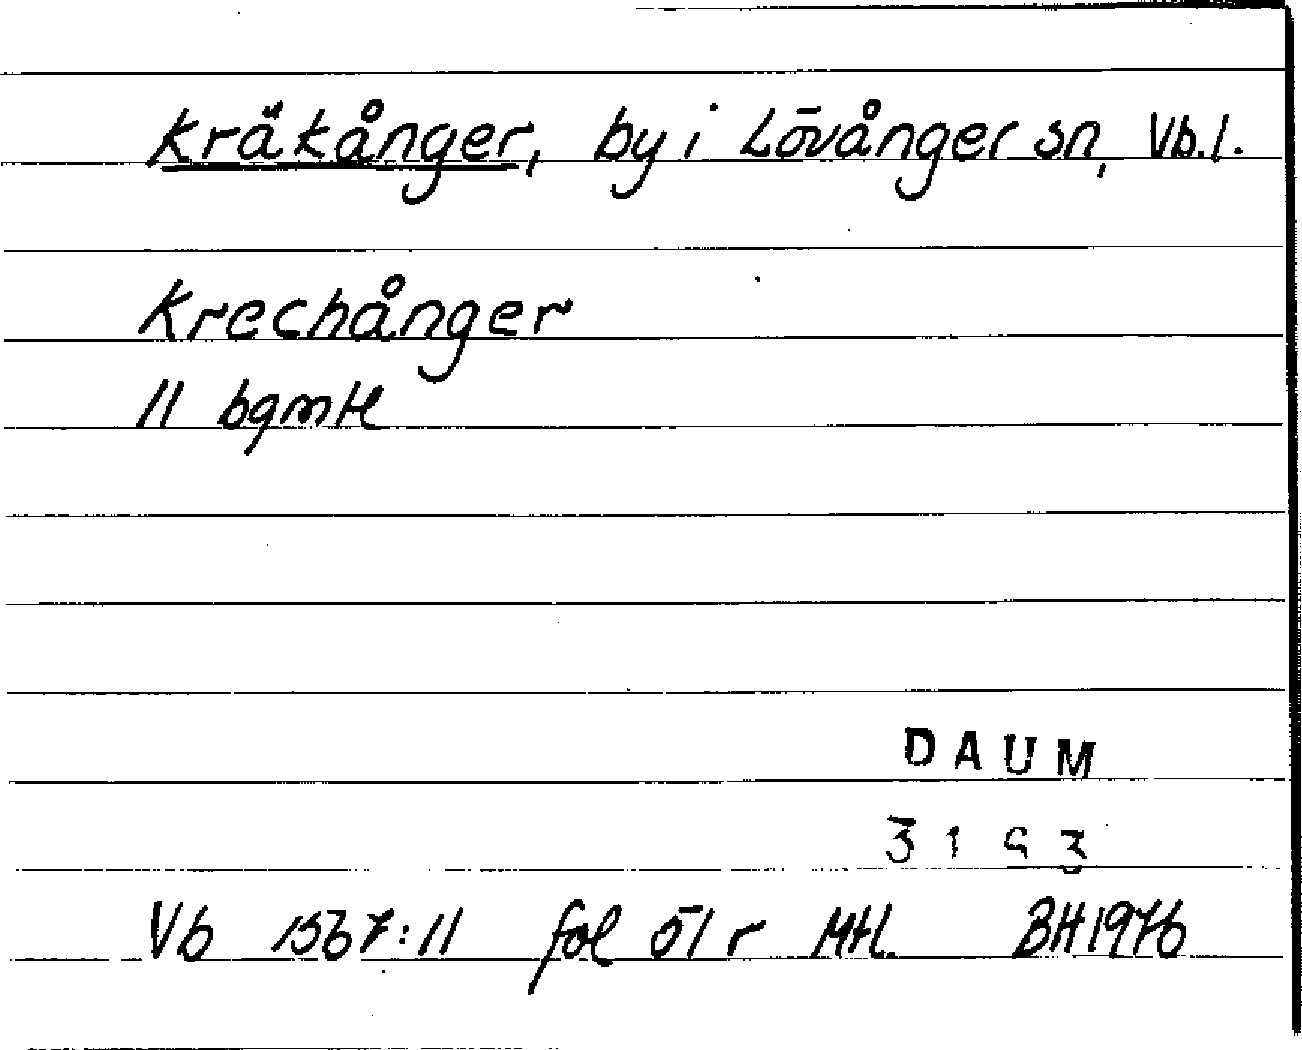 Kräkånger, by i Lövånger sn, Vb.l.
Krechånger
11 bgmtl
DAUM
3193
Vb 1567:11 fol 51 r Mtl. BH1976